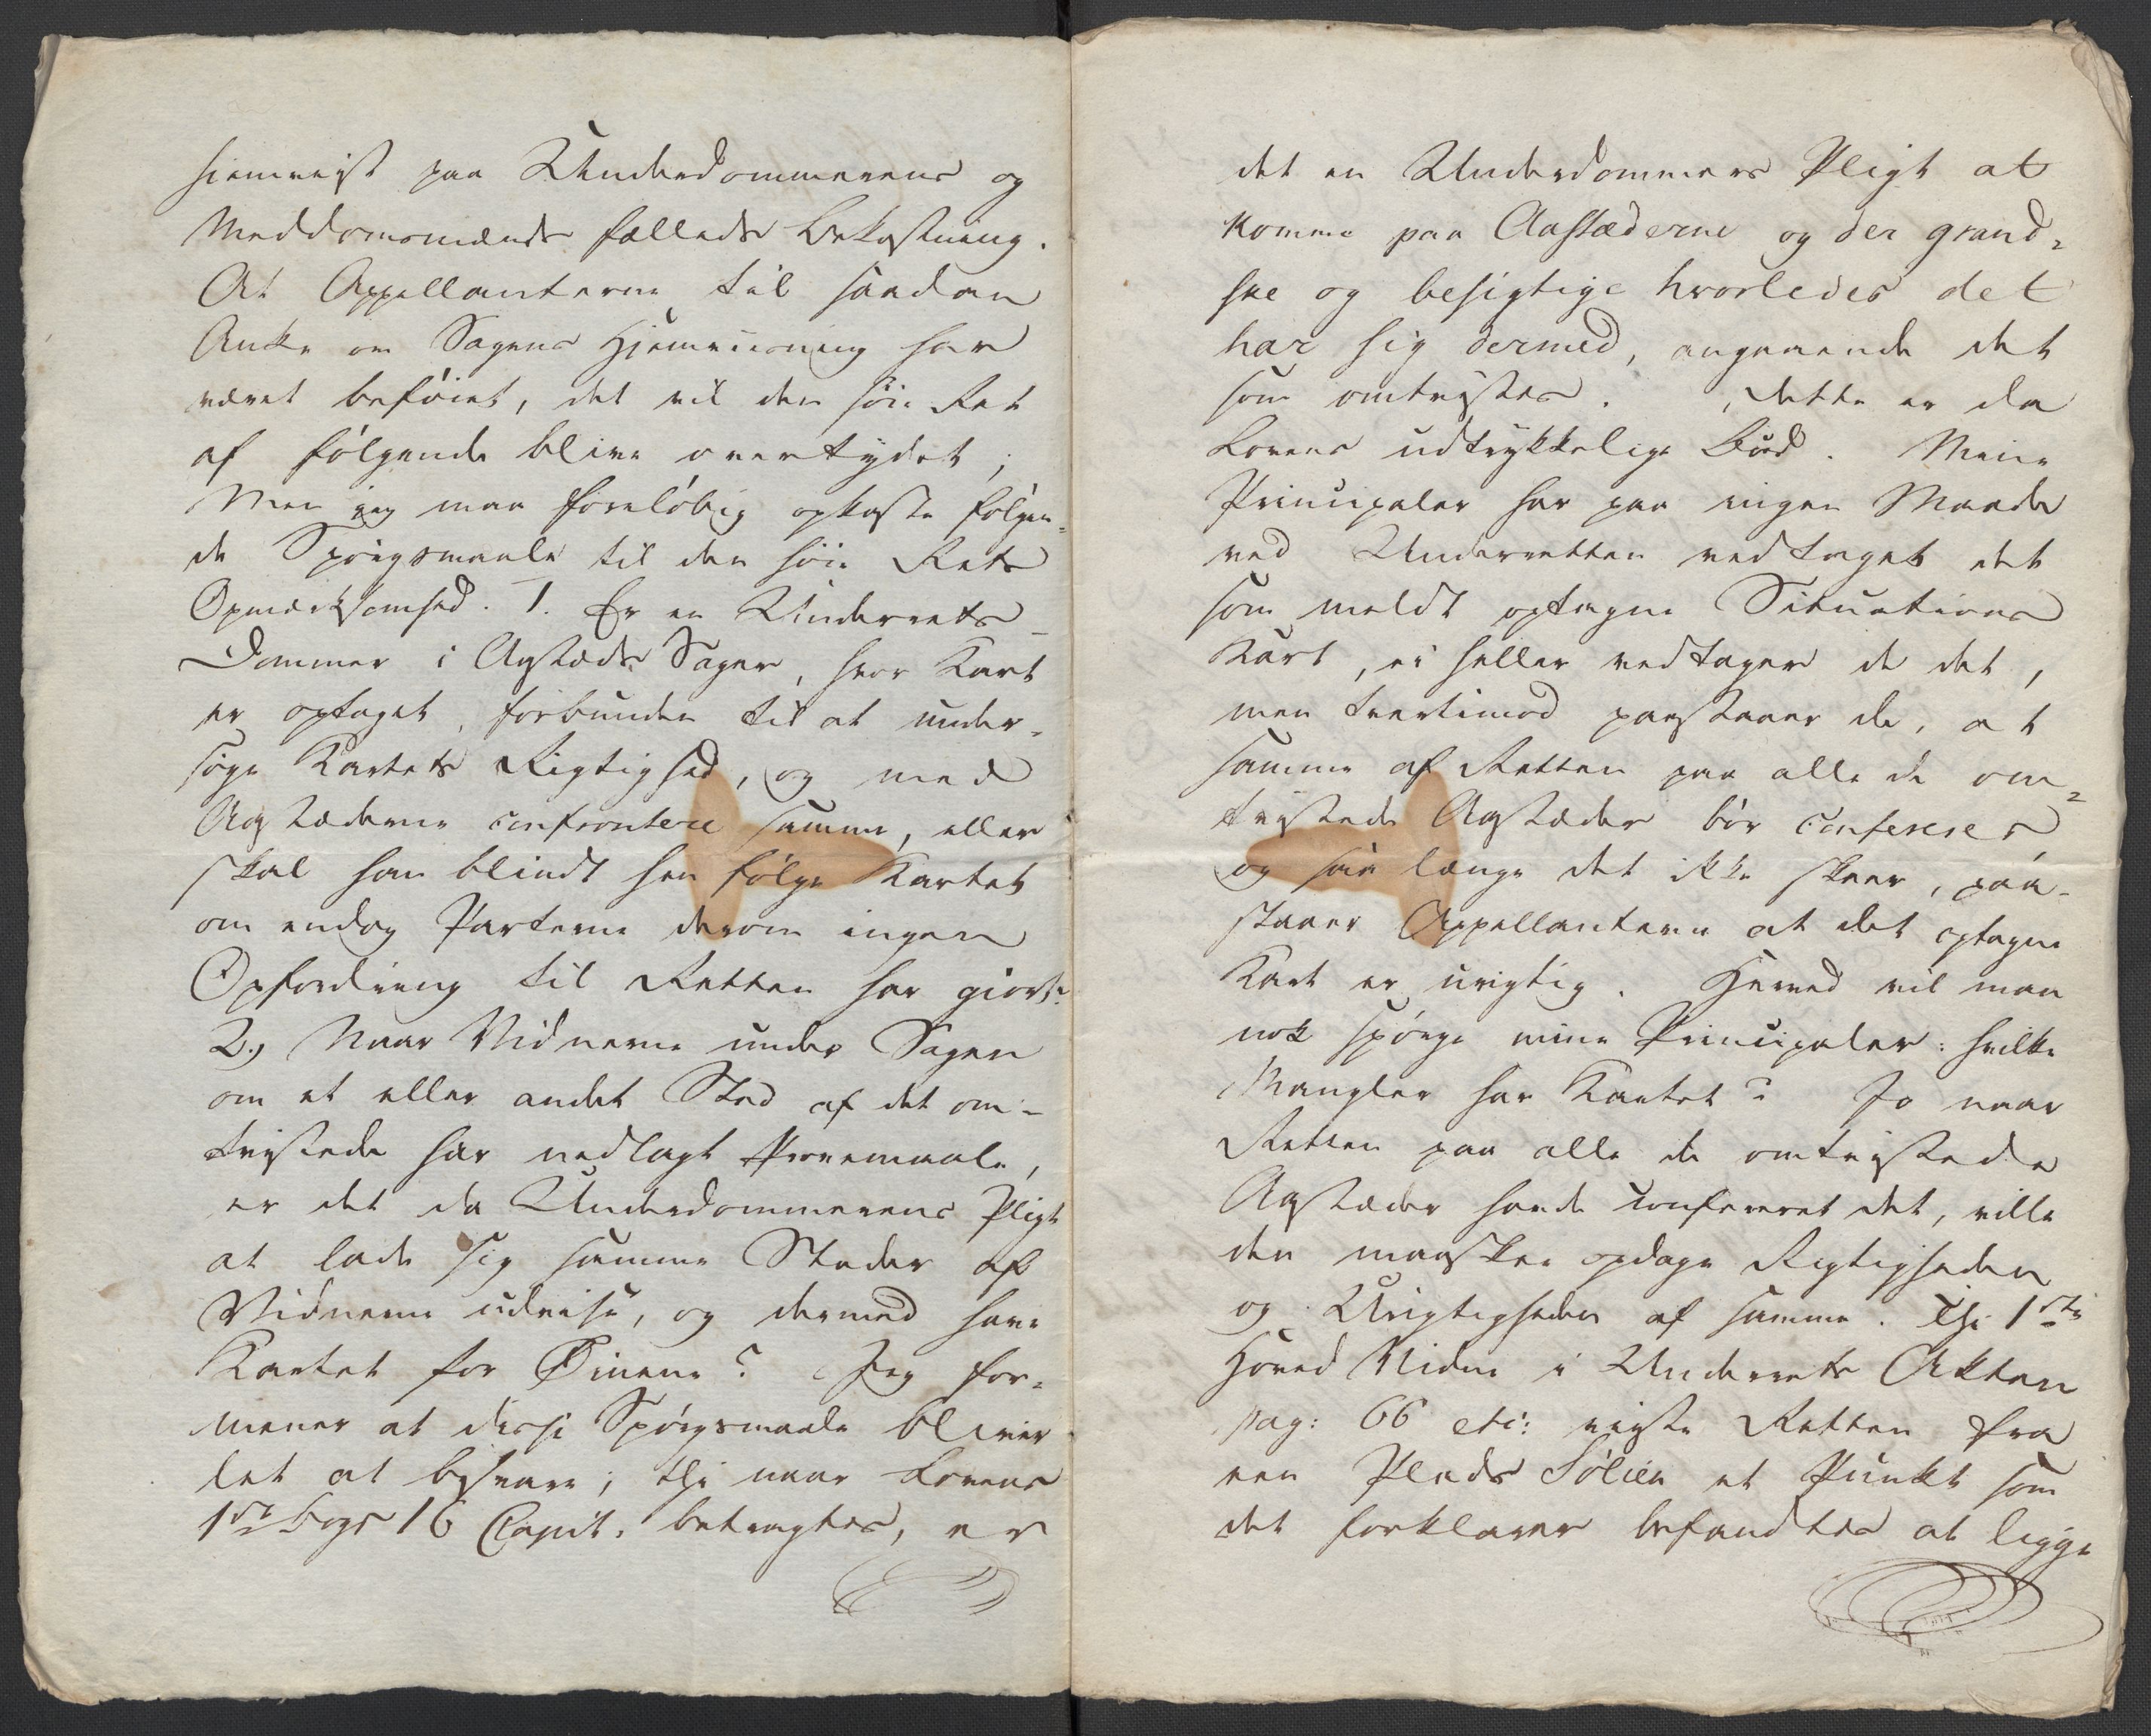 hiemviist paa Underdommerens og
Meddomsmænds fælleds Bekostning.
At Appellanterne til saadan
Anke om Sagens Hjemviisning har
været beføiet, det vil den høie Ret
af følgende blive overtydet;
Men jeg maa foreløbig opkaste følgen-
de Spørgsmaale til den høie Rets
Opmærksomhed. 1. Er en Underrets
Dommer i Aastæds Sager, hvor Kart
er optaget, forbunden til at under-
søge Kartets Rigtighed, og med
Aastæderne confrontere samme, eller
skal han blindt hen følge Kartet
om endog Parterne derom ingen
Opfordring til Retten har giort?
2.) Naar Vidnerne under Sagen
om et eller andet Sted af det om-
tvistede har nedlagt Provemaale,
er det da Underdommerens Pligt
at lade sig samme Steder af
Vidnerne udvise, og dermed have
Kartet for Øinene? Jeg for-
mener at disse Spørgsmaale bliver
let at besvare; thi naar Lovens
1ste Bogs 16 Capit. betragtes, er
det en Underdommers Pligt at
komme paa Aastæderne og der grand-
ske og besigtige hvorledes det
har sig dermed, angaaende det
som omtvistes. Dette er da
Lovens udtrykkelige Bud. Mine
Principaler har paa ingen Maade
ved Underretten vedtaget det
som meldt optagne Situations
Kart, ei heller vedtager de det,
men tvertimod paastaaer de, at
samme af Retten paa alle de om-
tvistede Aastæder bør confereres,
og saa længe det ikke skeer, paa-
staaer Appellanterne at det optagne
Kart er urigtig. Herved vil man
nok spørge mine Principaler: hvilke
Mangler har Kartet? Jo naar
Retten paa alle de omtvistede
Aastæder havde confereret det, ville
den maaskee opdage Rigtigheden
og Urigtigheden af samme. Thi 1ste
Hoved Vidne i Underrets Akten
pag: 66 etc: viiste Retten fra
een Plads Sølien et Punkt som
det forklarer befandtes at ligge